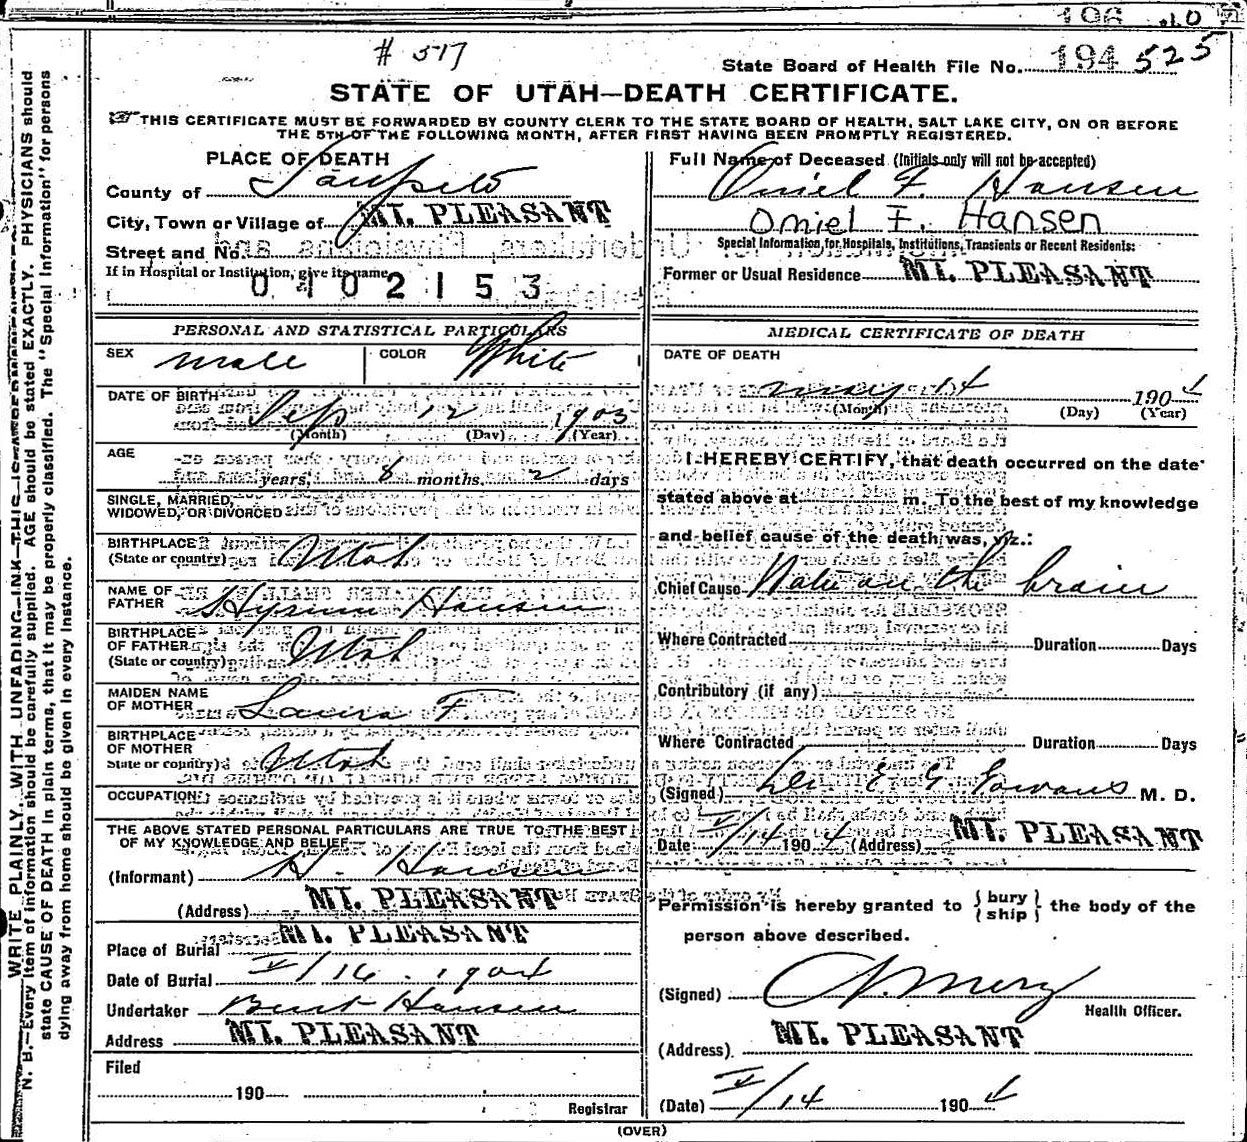 # 517
State Board of Health File No. 194 525
STATE OF UTAH—DEATH CERTIFICATE.
THIS CERTIFICATE MUST BE FORWARDED BY COUNTY CLERK TO THE STATE BOARD OF HEALTH, SALT LAKE CITY, ON OR BEFORE
THE 5TH OF THE FOLLOWING MONTH, AFTER FIRST HAVING BEEN PROMPTLY REGISTERED.
PLACE OF DEATH
County of Sanpete
City, Town or Village of MT. PLEASANT
Street and No.
If in Hospital or Institution, give its name
0102153
Full Name of Deceased (Initials only will not be accepted)
Omiel F. Hansen
Omiel F. Hansen
Special Information for Hospitals, Institutions, Transients or Recent Residents:
Former or Usual Residence MT. PLEASANT
PERSONAL AND STATISTICAL PARTICULARS
SEX male COLOR White
DATE OF BIRTH Sep 12 1903
(Month) (Day) (Year)
AGE
years, 8 months. 2 days
SINGLE, MARRIED,
WIDOWED, OR DIVORCED
BIRTHPLACE
(State or country) Utah
NAME OF
FATHER Hyrum Hansen
BIRTHPLACE
OF FATHER
(State or country) Utah
MAIDEN NAME
OF MOTHER Laura F
BIRTHPLACE
OF MOTHER
State or country) Utah
OCCUPATION
THE ABOVE STATED PERSONAL PARTICULARS ARE TRUE TO THE BEST
OF MY KNOWLEDGE AND BELIEF
(Informant) H. Hansen
(Address) MT. PLEASANT
Place of Burial MT. PLEASANT
Date of Burial V/16. 1904
Undertaker Bent Hansen
Address MT. PLEASANT
Filed
190
Registrar
MEDICAL CERTIFICATE OF DEATH
DATE OF DEATH
may 14 1904
(Month) (Day) (Year)
I HEREBY CERTIFY, that death occurred on the date
stated above at m. To the best of my knowledge
and belief cause of the death was, viz.:
Chief Cause Water on the brain
Where Contracted Duration Days
Contributory (if any)
Where Contracted Duration Days
(Signed) E G Gowans M. D.
Date V/14 1904 (Address) MT. PLEASANT
Permission is hereby granted to { bury
ship } the body of the
person above described.
(Signed)
Health Officer.
(Address) MT. PLEASANT
(Date) V/14 1904
(OVER)
WRITE PLAINLY, WITH UNFADING INK—THIS IS A
N. B.—Every item of information should be carefully supplied. AGE should be stated EXACTLY. PHYSICIANS should
state CAUSE OF DEATH in plain terms, that it may be properly classified. The "Special Information" for persons
dying away from home should be given in every instance.